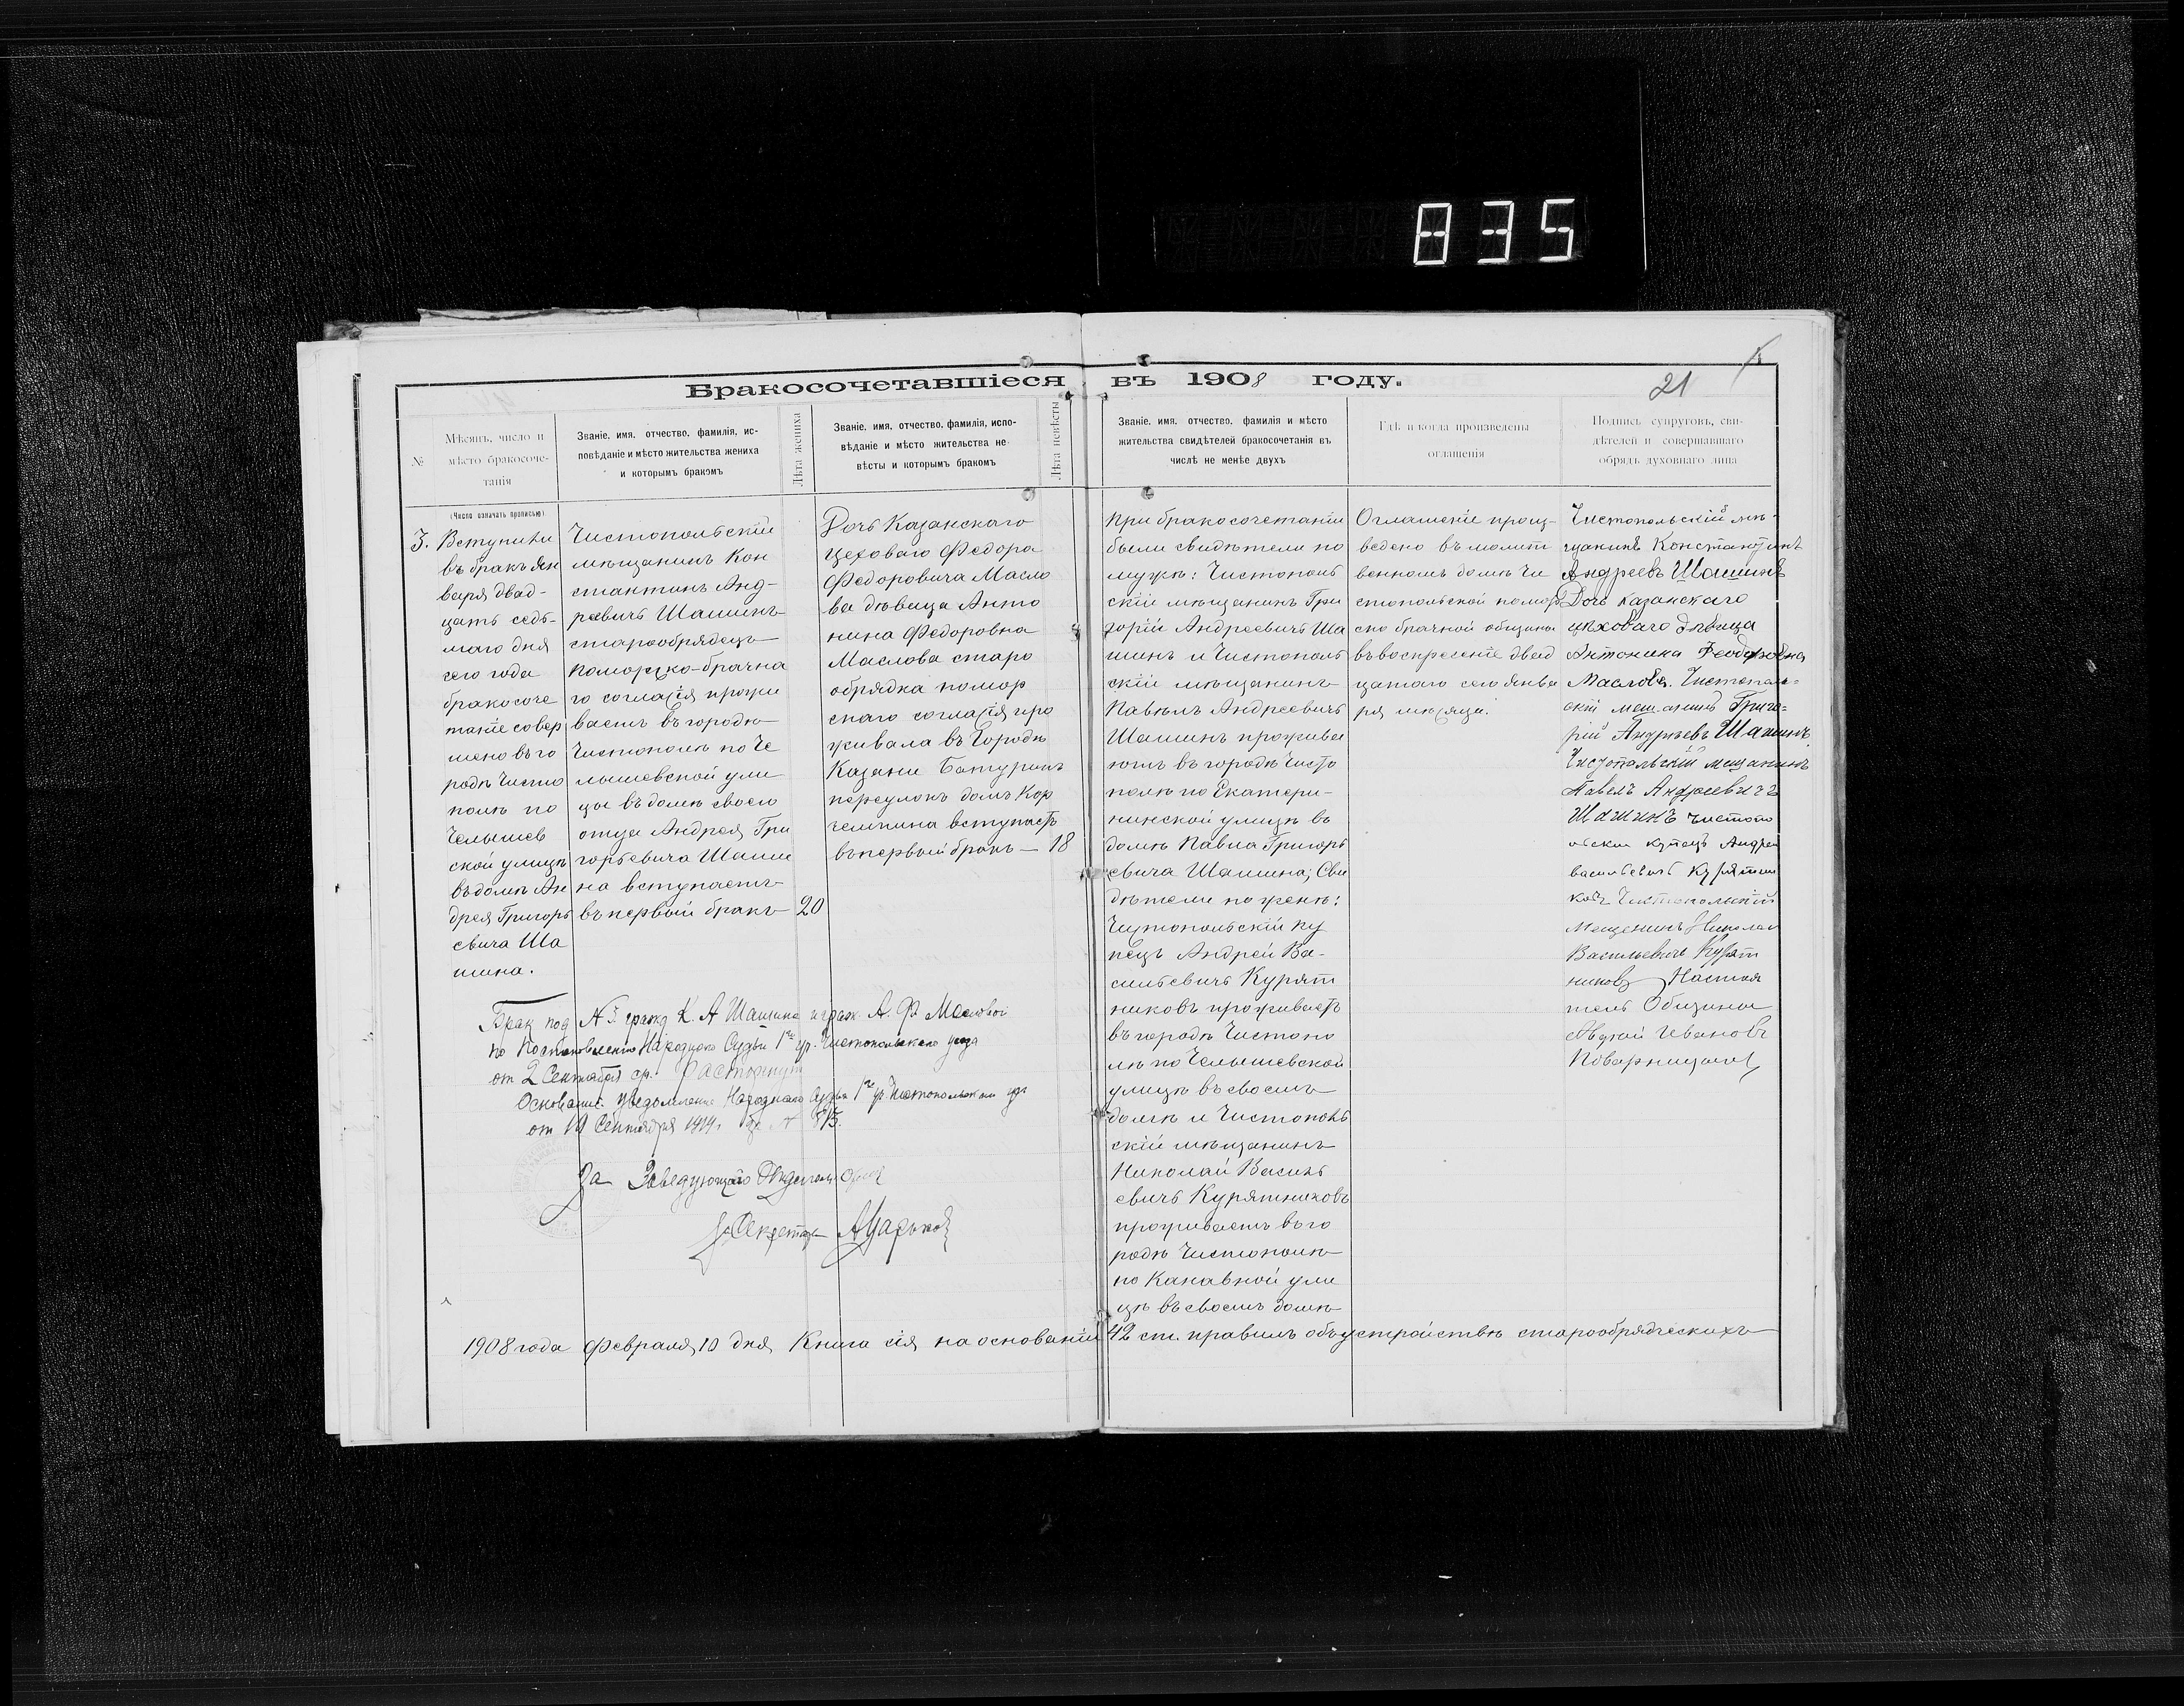 835
Бракосочетавшіеся въ 1908 году.
21
№
Мѣсяцъ, число и
мѣсто бракосоче-
танія
Званіе, имя, отчество, фамилія, ис-
повѣданіе и мѣсто жительства жениха
и которымъ бракомъ
Лѣта жениха
Званіе, имя, отчество, фамилія, испо-
вѣданіе и мѣсто жительства не-
вѣсты и которымъ бракомъ
Лѣта невѣсты
Званіе, имя, отчество, фамилія и мѣсто
жительства свидѣтелей бракосочетанія въ
числѣ не менѣе двухъ
Гдѣ и когда произведены
оглашенія
Подпись супруговъ, сви-
дѣтелей и совершавшаго
обрядъ духовнаго лица
(Число означать прописью)
3. Вступили
въ бракъ Ян
варя двад-
цать седь-
маго дня
сего года
бракосоче
таніе совер
шено въ го
родѣ Чисто
полѣ по
Челышев
ской улицѣ
въ домѣ Ан
дрея Григорь
евича Ша
шина.
Чистопольскій
мѣщанинъ Кон
стантинъ Анд-
реевичъ Шашинъ
старообрядецъ
поморско-брачна
го согласія прожи
ваетъ въ городѣ
Чистополѣ по Че
лышевской ули
цы въ домѣ своего
отца Андрея Гри
горьевича Шаши
на вступаетъ
въ первый бракъ 20
Дочь Казанскаго
Цеховаго Федора
Федоровича Масло
ва дѣвица Анто
нина Федоровна
Маслова старо
обрядка помор
скаго согласія про
живала въ Городѣ
Казани Батуринъ
переулокъ домъ Кор
чемкина вступаетъ
въ первый бракъ — 18
При бракосочетаніи
были свидѣтели по
мужѣ: Чистополь
скій мѣщанинъ Гри
горій Андреевичъ Ша
шинъ и Чистополь
скій мѣщанинъ
Павелъ Андреевичъ
Шашинъ прожива
ютъ въ городѣ Чисто
полѣ по Екатери-
нинской улицѣ въ
домѣ Павла Григорь
евича Шашина; Сви
дѣтели по женѣ:
Чистопольскій ку
пецъ Андрей Ва-
сильевичъ Курят
никовъ проживаетъ
въ городѣ Чистопо
лѣ по Челышевской
улицѣ въ своемъ
домѣ и Чистополь
скій мѣщанинъ
Николай Василь
евичъ Курятниковъ
проживаетъ въ го
родѣ Чистополѣ
по Канавной ули
цѣ въ своемъ домѣ
Оглашеніе произ-
ведено въ молит
венномъ домѣ Чи
стопольской помор
ско брачной общины
въ воскресеніе двад
цатаго сего Янва
ря мѣсяца.
Чистопольскій мѣ-
щанинъ Константинъ
Андреевъ Шашинъ
Дочь казанскаго
цѣховаго дѣвица
Антонина Феодоровна
Маслова. Чистополь-
скій мещанинъ Григо-
рій Андрѣевъ Шашинъ
Чистопольскій мещанинъ
Павелъ Андреевичъ
Шашинъ чистопо
льскій купецъ Андрей
васильевичъ Курятни
ковъ Чистопольскій
Мещенинъ Николай
Васильевичъ Курят
никовъ Настоя
тель Общины
Ивановъ
Поварницынъ
Брак под № 3. гражд К. А Шашина и граж. А. Ф Масловой
по Постановлению Народного Судьи 1го уч. Чистопольского уезда
от 2 Сентября с.г. расторгнут
Основание: уведомление Народного Судьи 1го уч Чистопольского уезда
от 19 Сентября 1919 г. за № 815.
За Заведующаго Отделом
Секретарь
1908 года февраля 10 дня Книга сія на основаніи 42 ст. правилъ объ устройствѣ старообрядческихъ